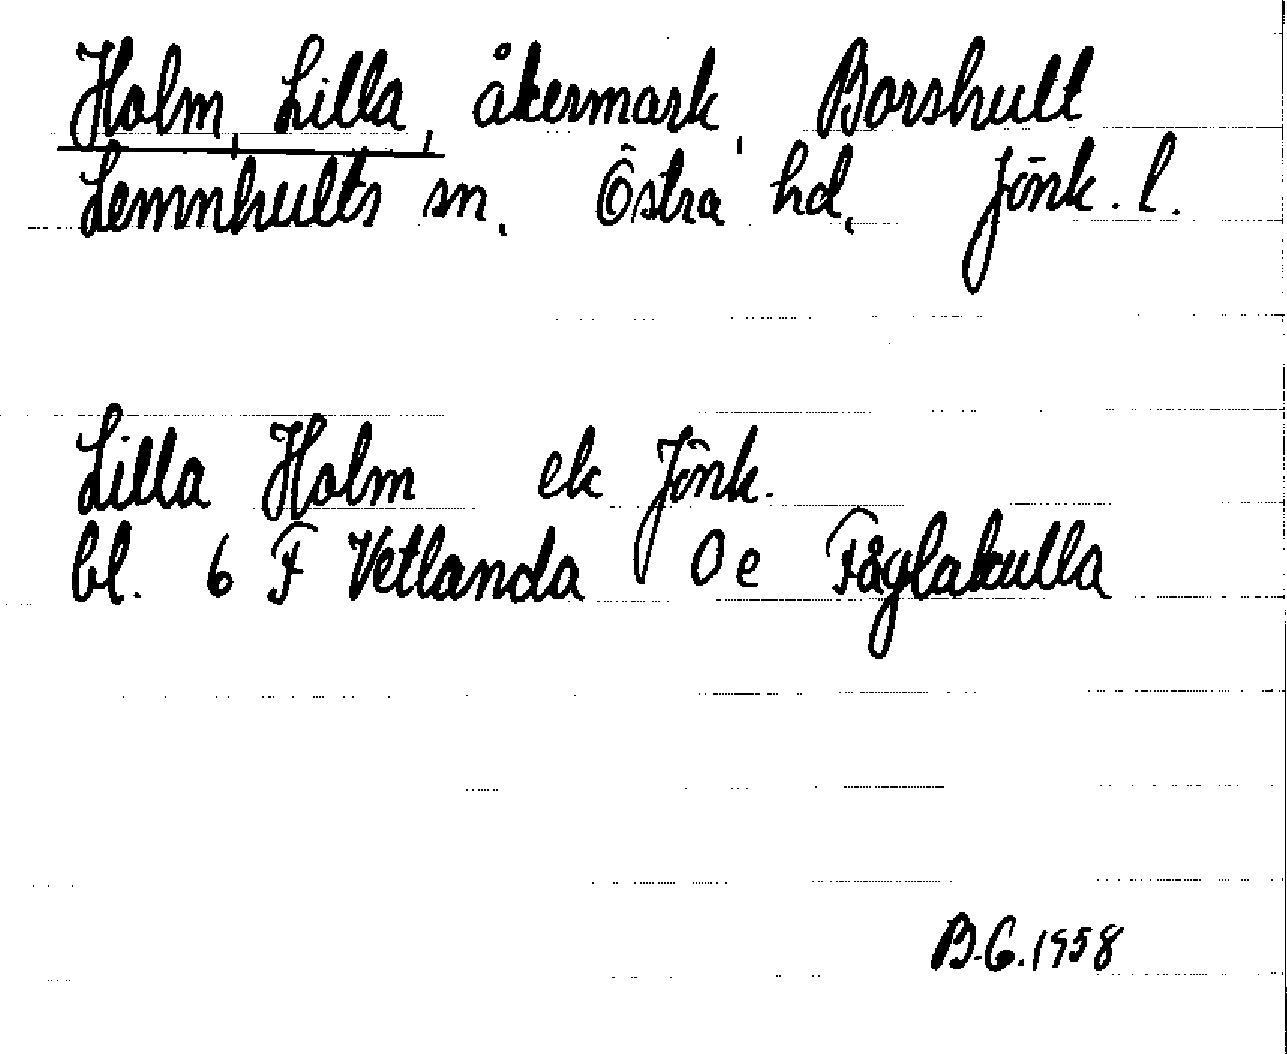 Holm, Lilla, åkermark, Borshult
Lemnhults sn, Östra hd, Jönk. l.
Lilla Holm ek Jönk.
bl. 6 F Vetlanda 0 e Fåglakulla
B.G. 1958